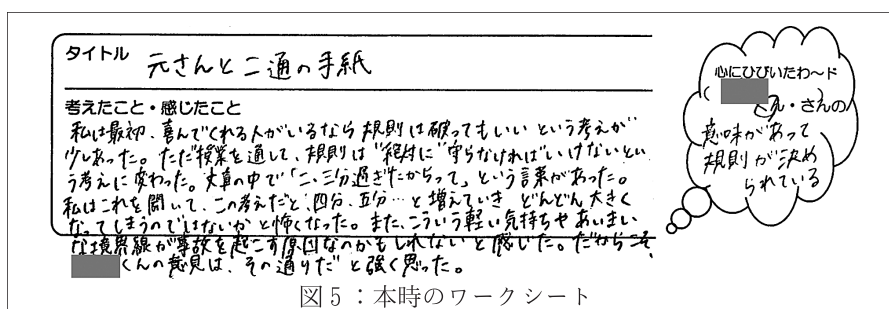 タイトル 元さんと二通の手紙
考えたこと・感じたこと
私は最初、喜んでくれる人がいるなら規則は破ってもいいという考えが
少しあった。ただ授業を通して、規則は"絶対に"守らなければいけないとい
う考えに変わった。文章の中で「二、三分過ぎたからって」という言葉があった。
私はこれを聞いて、この考えだと四分、五分…と増えていき どんどん大きく
なってしまうのではないかと怖くなった。また、こういう軽い気持ちやあいまい
な境界線が事故を起こす原因なのかもしれないと感じた。だからこそ、
くんの意見は、その通りだと強く思った。
心にひびいたわ〜ド
( くん・さんの
意味があって
規則が決め
られている
図5：本時のワークシート